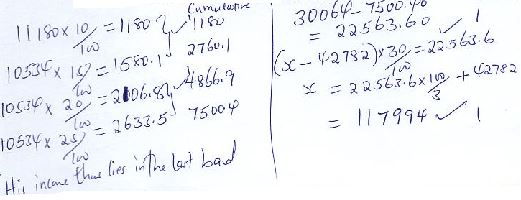 Cumulative
11180 × 10/100 = 1180 } 1180
10534 × 15/100 = 1580.1 2760.1
10534 × 20/100 = 2106.8 4866.9
10534 × 25/100 = 2633.5 7500.4
His income thus lies in the last band
30064 - 7500.40
= 22563.60 1
(x - 42782) × 30/100 = 22563.6
x = 22563.6 × 100/3 + 42782
= 117994 ✓ 1